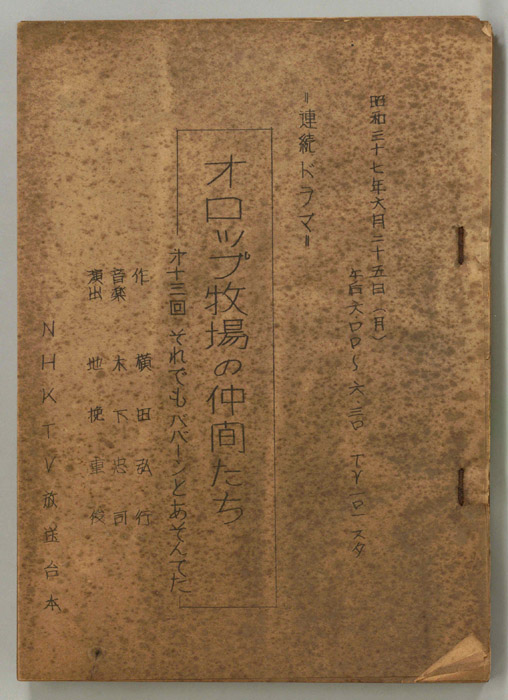 昭和三十七年六月二十五日(月)
午后六・〇〇〜六・三〇 TV一〇一スタ
=連続ドラマ=
オロップ牧場の仲間たち
第十三回 それでもババーンとあそんでた
作 横田弘行
音楽 木下忠司
演出 地挽重俊
NHKTV放送台本